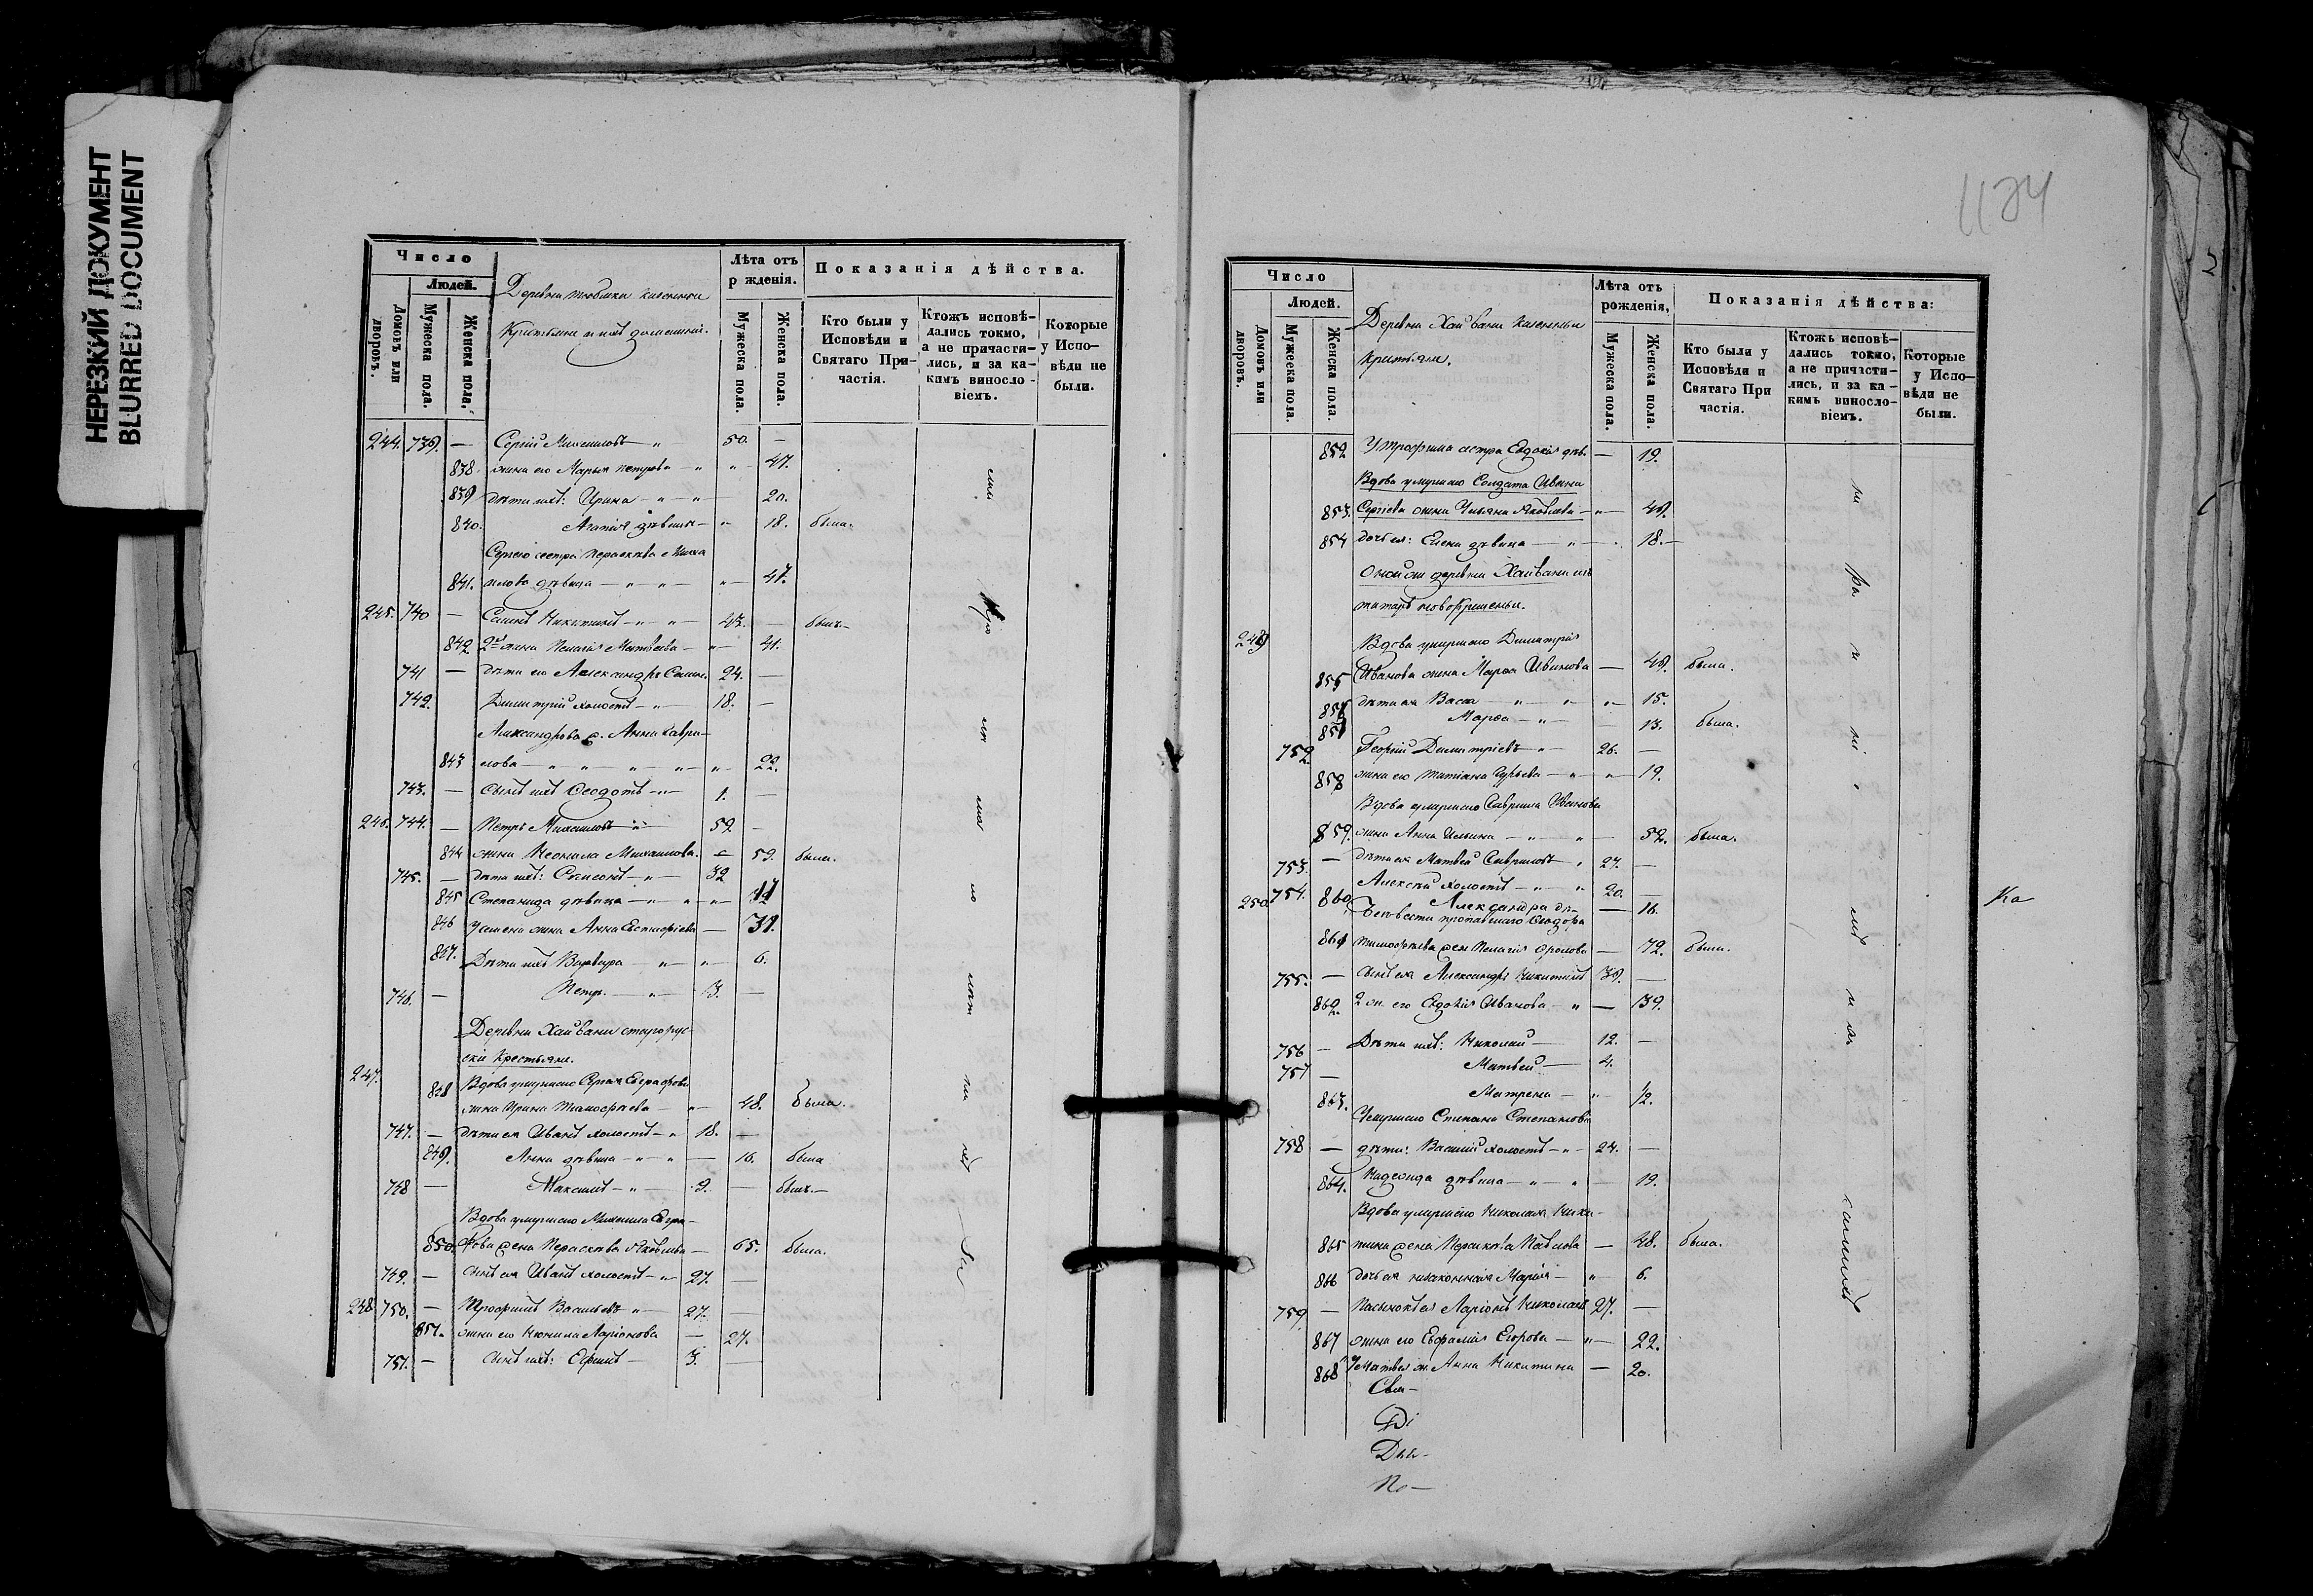 НЕРЕЗКИЙ ДОКУМЕНТ
BLURRED DOCUMENT
Число
Людей.
Домовъ или дворовъ.
Мужеска пола.
Женска пола.
Деревни казенные
Крестьяне и ихъ домашніи.
Лѣта отъ р жденія.
Мужеска пола.
Женска пола.
Показанія дѣйства.
Кто были у Исповѣди и Святаго При-частія.
Ктожъ исповѣ-дались токмо, а не причасти-лись, и за ка-кимъ винословіемъ.
Которые у Испо-вѣди не были.
244. 739. — Сергій Михаиловъ „ 50. —
838. жена его Марья Петрова — „ „ — 47.
839 дѣти ихъ: Ирина — „ — „ 20.
840. Агапія дѣвица — „ 18. была.
Сергею сестра Параскева Миха
841. илова дѣвица — „ — „ — „ — 47.
245. 740 — Никитинъ — „ — „ — 43. — былъ —
842 2я жена Пелагія Матвѣева — „ — 41.
741 — дѣти его Александръ 24. —
742. Димитрій холостъ — „ — 18. —
Александрова ж. Анна Гаври —
843 лова — „ — „ — „ — „ — „ — 22.
743. — сынъ ихъ Ѳеодотъ — „ — 1. —
246. 744. — Петръ Михаиловъ „ 59. —
844 жена Неонила Михаилова. — 59. была.
745. — дѣти ихъ: Симеонъ — „ — 32
845 Степанида дѣвица — „ — „ — „ —
846 Усемена жена Анна — 31.
847. Дѣти ихъ Варвара — „ — „ — 6.
746. — Петръ. — „ — 3. —
Деревни Хайвани старорус-
скіи Крестьяне.
247.
848 Вдова умершаго Сергея Евграфова
жена Ирина Тимофеева — „ — 48. была.
747. — дѣти ея Иванъ холостъ — „ 18. —
849. Анна дѣвица — „ — „ — 16. была
748 — Максимъ — „ — 9. — былъ. —
Вдова умершаго Михаила Евгра —
850. фова жена Параскева Яковлева — 65. была.
749. — сынъ ея Иванъ холостъ — „ — 27. —
248 750. — Трофимъ Васильевъ „ — 27. —
851. жена его Неонила Ларіонова — 27.
751. — сынъ ихъ: Ефимъ — 3. —
1134
Число
Людей.
Домовъ или дворовъ.
Мужеска пола.
Женска пола.
Деревни Хайвани казенныи
крестьяне.
Лѣта отъ рожденія,
Мужеска пола.
Женска пола.
Показанія дѣйства:
Кто были у Исповѣди и Святаго При частія.
Ктожъ исповѣ-дались токмо, а не причасти-лись, и за ка-кимъ винословіемъ.
Которые у Испо-вѣди не были.
852 У Трофима сестра Евдокія дѣв. — 19.
Вдова умершаго Солдата Ивана
853. Сергіева жена Ульяна Яковлева — „ — 49.
854 дочь ея: Елена дѣвица — „ — 18. —
Оной же деревни Хайвани изъ
татаръ новокрещены.
249 Вдова умершаго Димитрія
855 Иванова жена Марѳа Иванова — 49. была.
856 дѣти ея Васса — „ — „ — „ — 15.
857 Марѳа — „ — — 13. была.
752. Георгій Димитріевъ — „ — 26. —
858 жена его Татіана Гурьева — „ — „ — 19.
Вдова умершаго Гавриила Иванова
859. жена Анна Ильина — „ — „ — 52. была.
753. — дѣти ея Матвей Гавриловъ „ 27. —
754. Алексѣй холостъ — „ — „ 20. —
860 Александра дѣ — — 16.
250 Безвѣстно пропавшаго Ѳеодора
861 Тимофеева жен Пелагія Фролова — 72. была.
755. — сынъ ея Александръ Никитинъ 39. —
862. 2 ж. его Евдокія Иванова — „ — 39.
756 — Дѣти ихъ: Николай — 12. —
757 — Матвей — 4.
863. Матрена — „ — 12.
Умершаго Степана Степанова
758 — дѣти: Василій холостъ — „ — 24. —
864. Надежда дѣвица — „ — „ — 19.
Вдова умершаго Николая Ники —
865 тина жена Параскева Павлова — 48. была.
866 дочь ея незаконная Марія — „ — 6.
759 — Пасынокъ ея Ларіонъ Николаевъ 27. —
867 жена его Евфимія Егорова — „ — 22.
868 У Матвея ж. Анна Никитина — 20.
Свя —
Ді
Дья-
По —
Ка